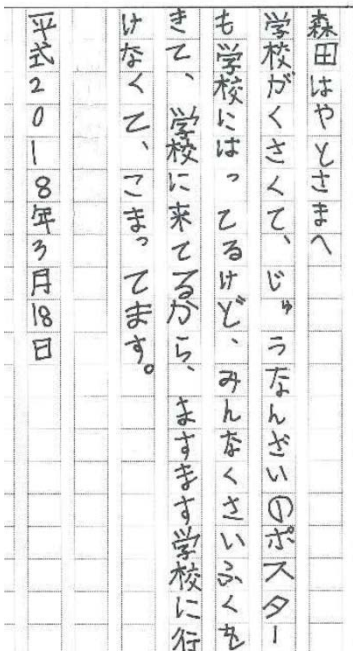 森田はやとさまへ
学校がくさくて、じゅうなんざいのポスター
も学校にはってるけど、みんなくさいふくを
きて、学校に来てるから、ますます学校に行
けなくて、こまってます。
平式2018年3月18日